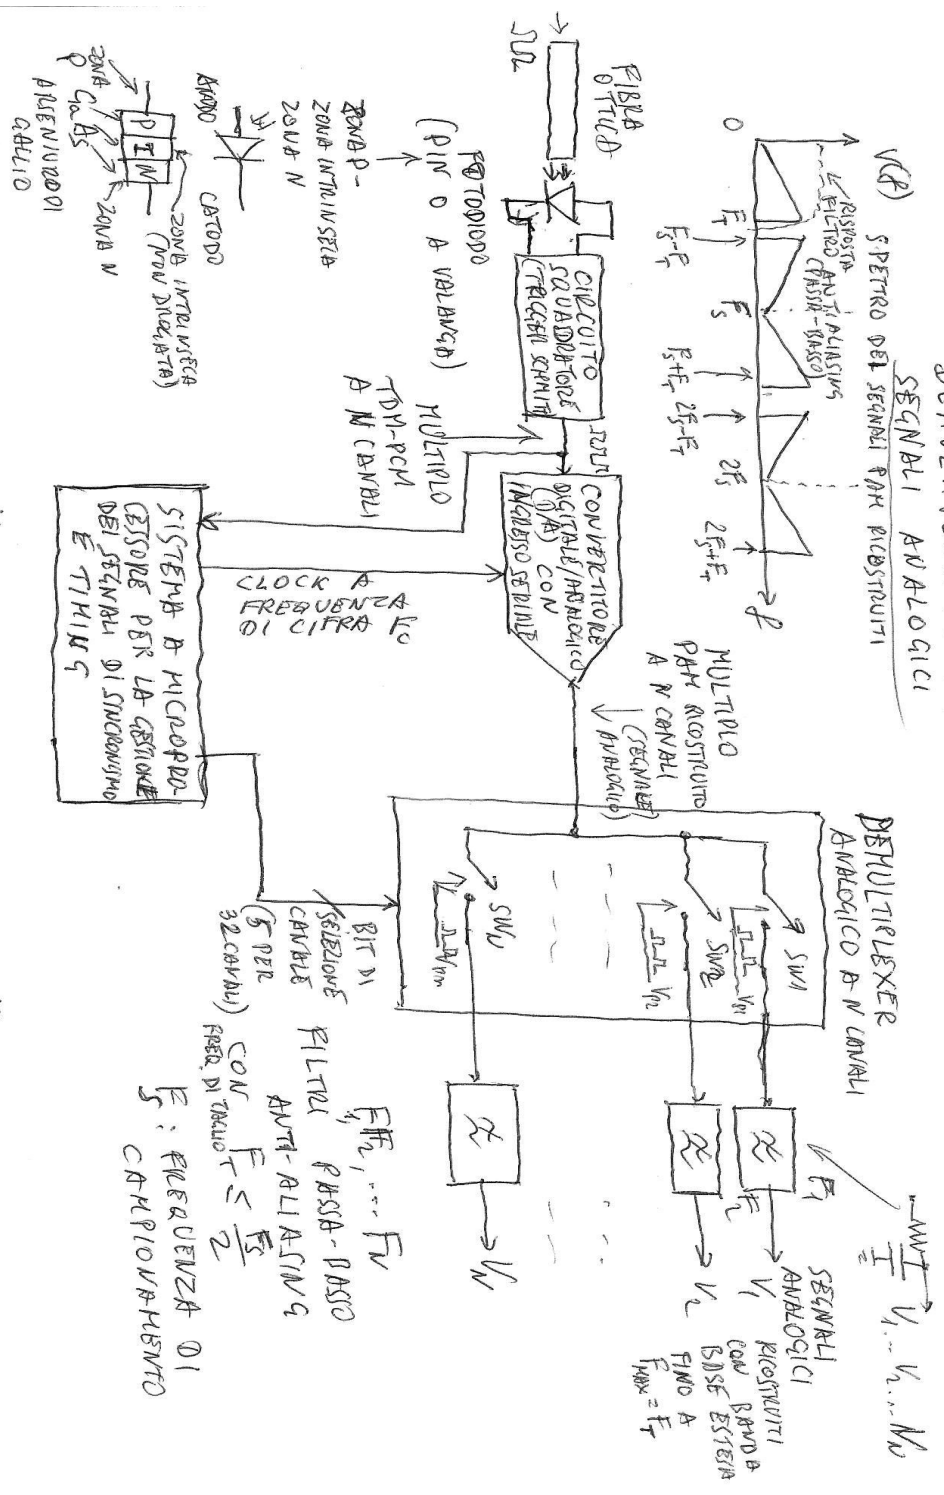 SEGNALI ANALOGICI
SPETTRO DEI SEGNALI PAM RICOSTRUITI
V(f)
RISPOSTA
FILTRO ANTIALIASING
(PASSA-BASSO)
0
FT
FS-FT
FS
FS+FT
2FS-FT
2FS
2FS+FT
f
FIBRA
OTTICA
FOTODIODO
(PIN O A VALANGA)
ZONA P-
ZONA INTRINSECA
ZONA N
ANODO
CATODO
P I N
ZONA
P
GaAs
ZONA N
ZONA INTRINSECA
(NON DROGATA)
ARSENIURO DI
GALLIO
CIRCUITO
SQUADRATORE
(TRIGGER SCHMITT)
MULTIPLO
TDM-PCM
A N CANALI
CONVERTITORE
DIGITALE/ANALOGICO
(D/A) CON
INGRESSO SERIALE
CLOCK A
FREQUENZA
DI CIFRA Fc
SISTEMA A MICROPRO-
CESSORE PER LA GESTIONE
DEI SEGNALI DI SINCRONISMO
E TIMING
MULTIPLO
PAM RICOSTRUITO
A N CANALI
(SEGNALE
ANALOGICO)
DEMULTIPLEXER
ANALOGICO A N CANALI
SW1
SW2
SWN
VP1
VP2
BIT DI
SELEZIONE
CANALE
(5 PER
32 CANALI)
F1
F2
V1... V2... VN
SEGNALI
ANALOGICI
V1 RICOSTRUITI
CON BANDA
V2 BASE ESTESA
FINO A
FMAX=FT
VN
F1, F2, ... FN
FILTRI PASSA-BASSO
ANTI-ALIASING
CON FT ≤ FS/2
FREQ. DI TAGLIO
FS: FREQUENZA DI
CAMPIONAMENTO